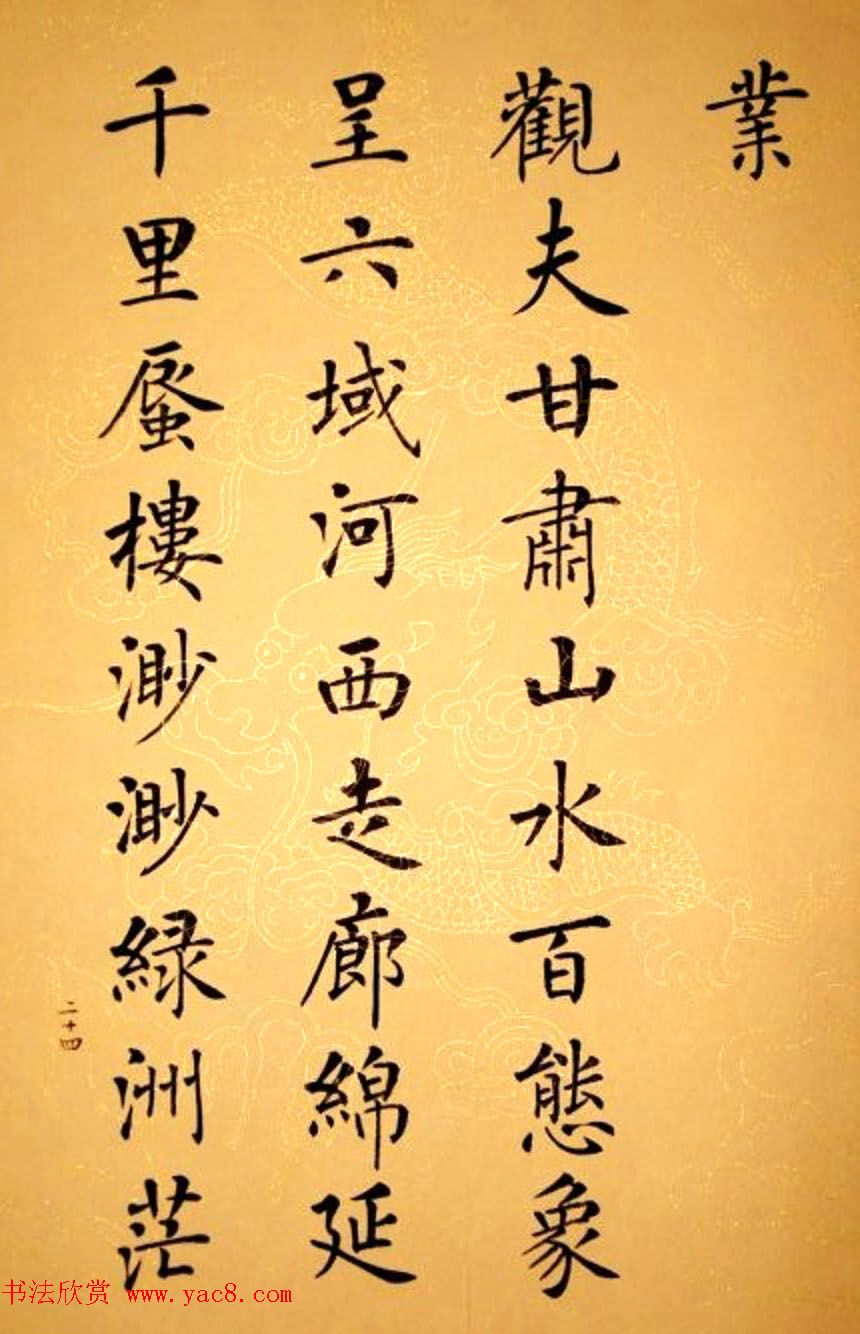 業
觀夫甘肅山水百態象
呈六域河西走廊綿延
千里蜃樓渺渺緑洲茫
二十四
书法欣赏 www.yac8.com